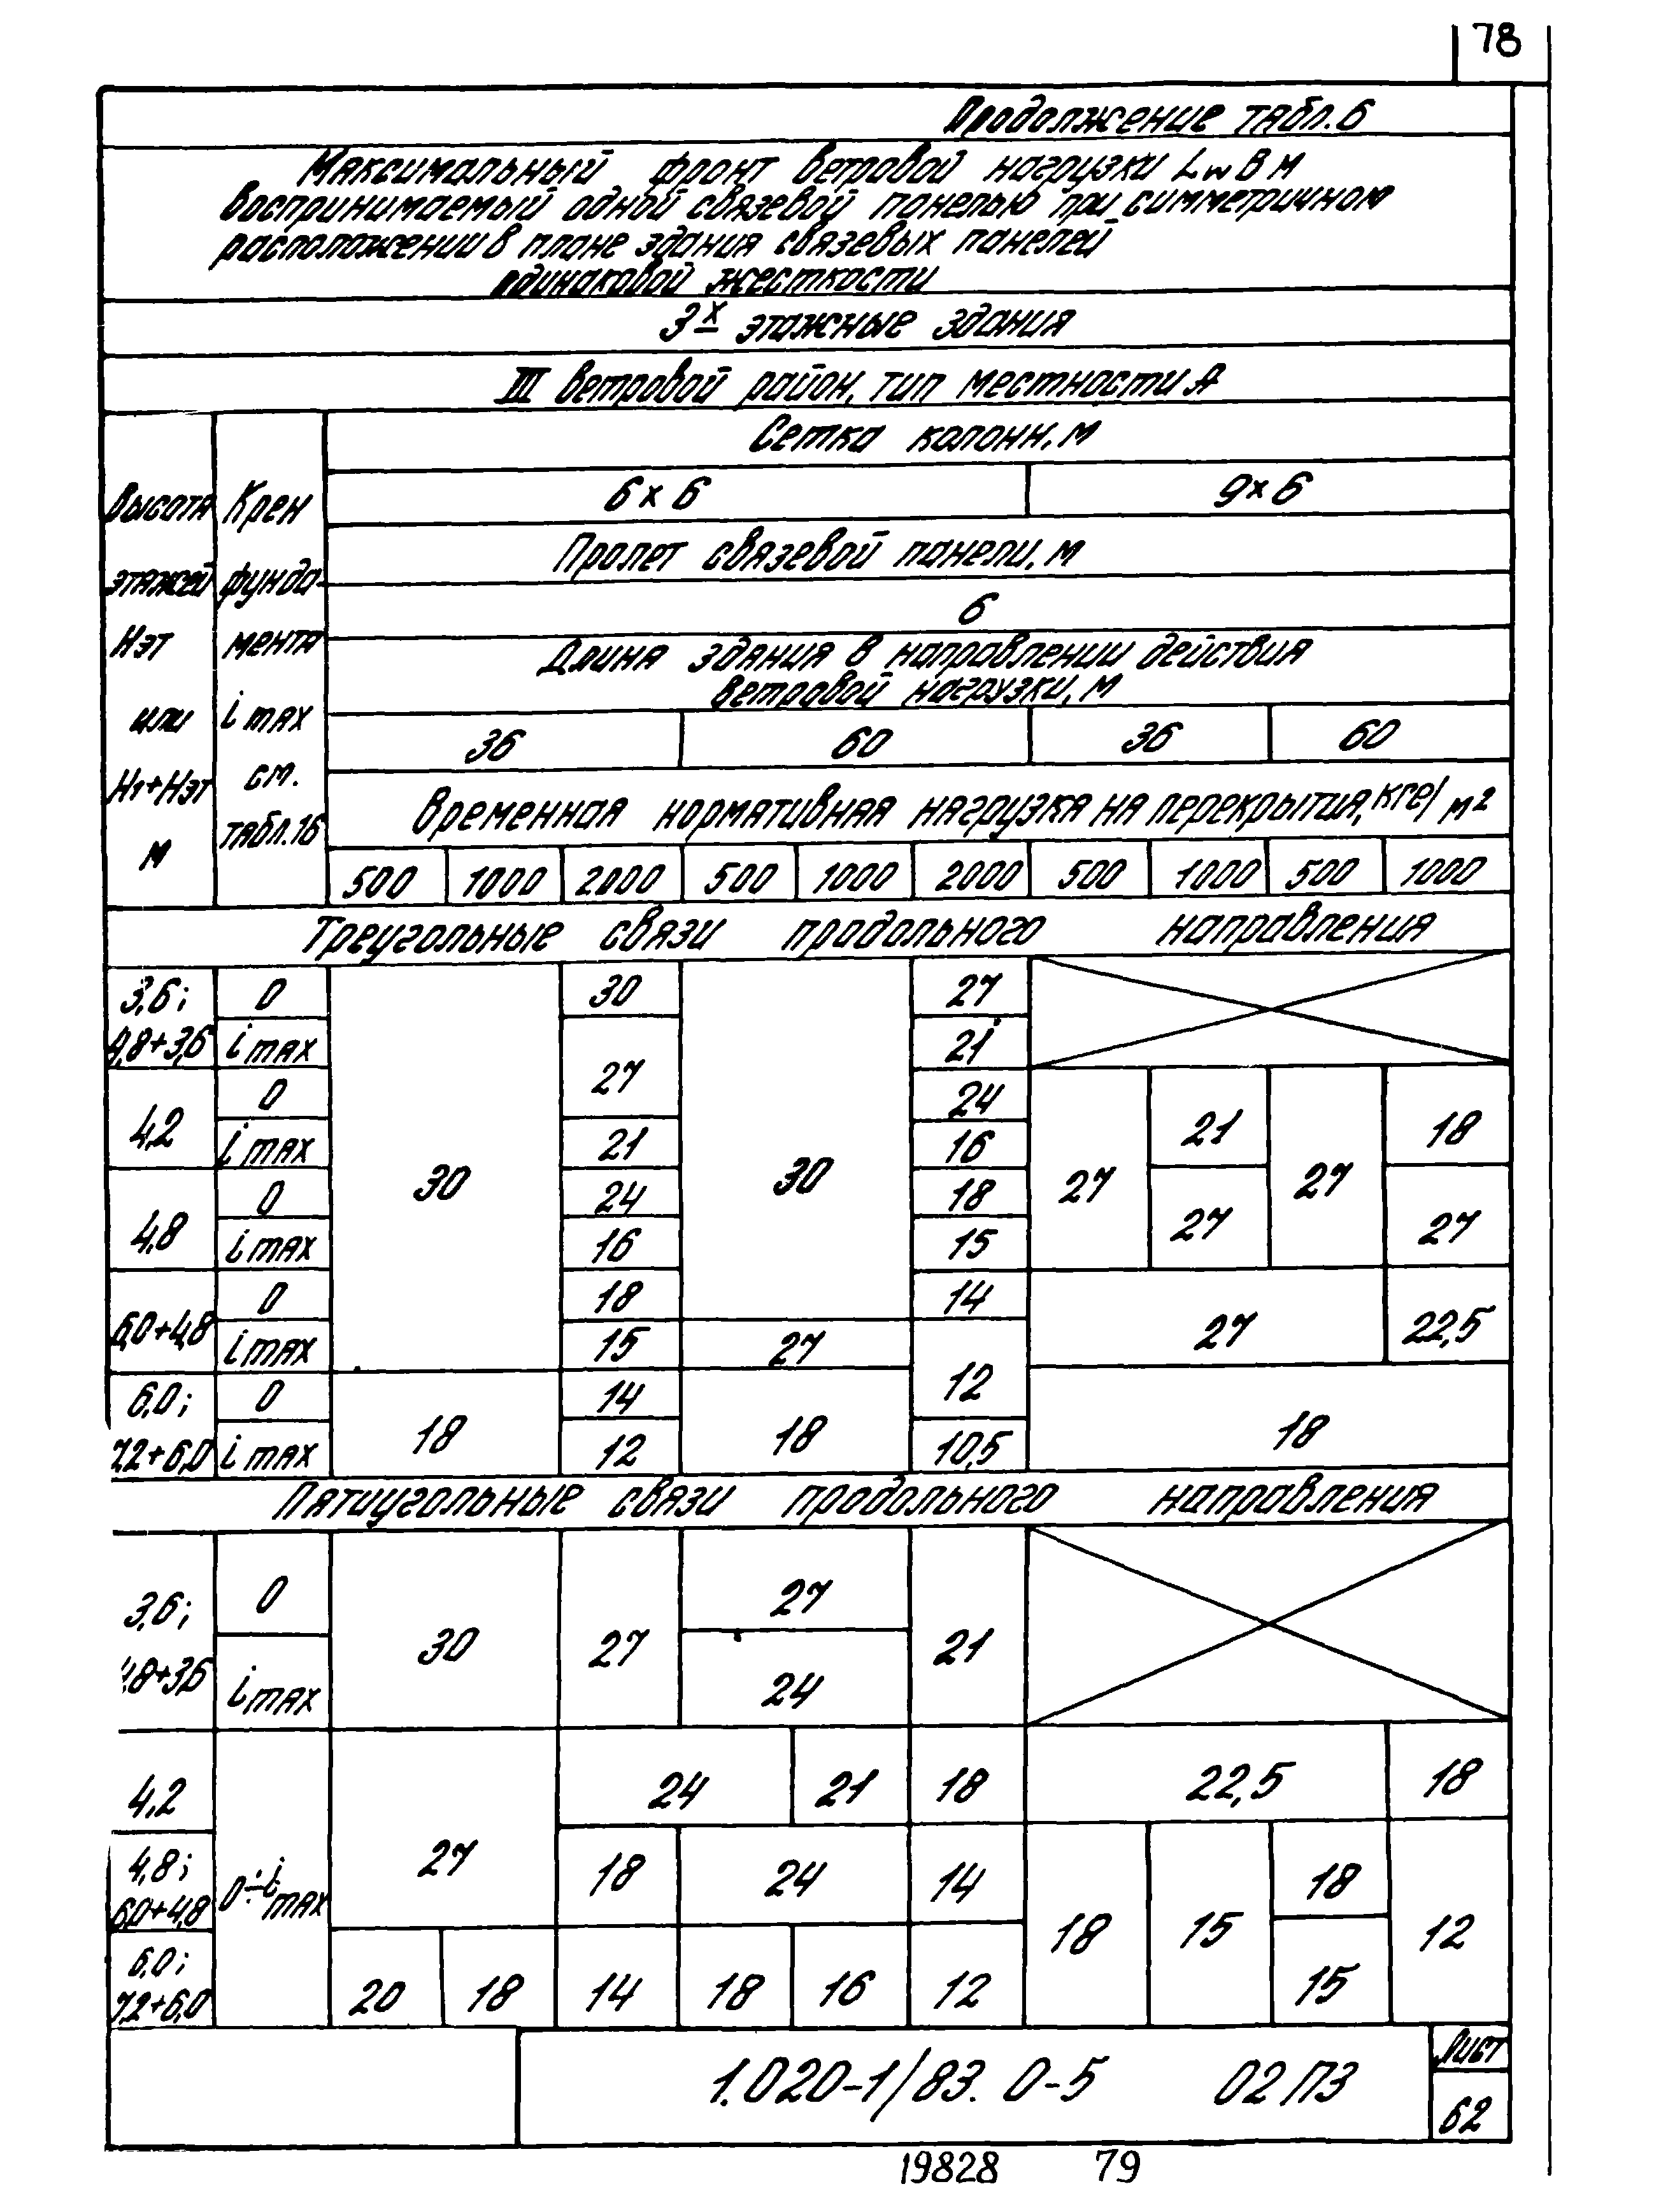 78
Продолжение табл. 6
Максимальный фронт ветровой нагрузки Lw в м
воспринимаемый одной связевой панелью при симметричном
расположении в плане здания связевых панелей
одинаковой жесткости
3х этажные здания
III ветровой район, тип местности А
Высота этажей Нэт или Н1+Нэт м
Крен фунда-мента i max см. табл. 16
Сетка колонн, м
6 х 6 9 х 6
Пролет связевой панели, м
6
Длина здания в направлении действия
ветровой нагрузки, м
36 60 36 60
Временная нормативная нагрузка на перекрытия, кгс/м²
500 1000 2000 500 1000 2000 500 1000 500 1000
Треугольные связи продольного направления
3,6; 0 30 27
4,8+3,6 i max 27 21
4,2 0 24 21 18
i max 21 16
30 30 27 27
4,8 0 24 18 27 27
i max 16 15
6,0+4,8 0 18 14 27 22,5
i max 15 27 12
6,0; 0 18 14 18 18
7,2+6,0 i max 12 10,5
Пятиугольные связи продольного направления
3,6; 0 30 27 27 21
4,8+3,6 i max 24
4,2 0÷i max 27 24 21 18 22,5 18
4,8; 18 24 14 18 15 18 12
6,0+4,8
6,0; 20 18 14 18 16 12 15
7,2+6,0
1.020-1/83. 0-5 02 ПЗ
Лист
62
19828 79